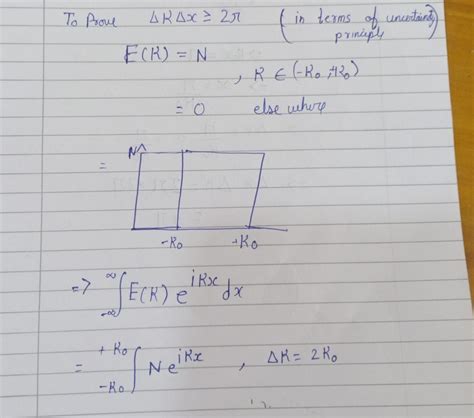 To Prove ΔK Δx ≥ 2π (in terms of uncertainty principle)
E(K) = N , K ∈ (-K₀, +K₀)
= 0 elsewhere
=
N
-K₀ +K₀
=> ∫_{-∞}^{∞} E(K) e^{iKx} dx
= ∫_{-K₀}^{+K₀} N e^{iKx} , ΔK = 2K₀